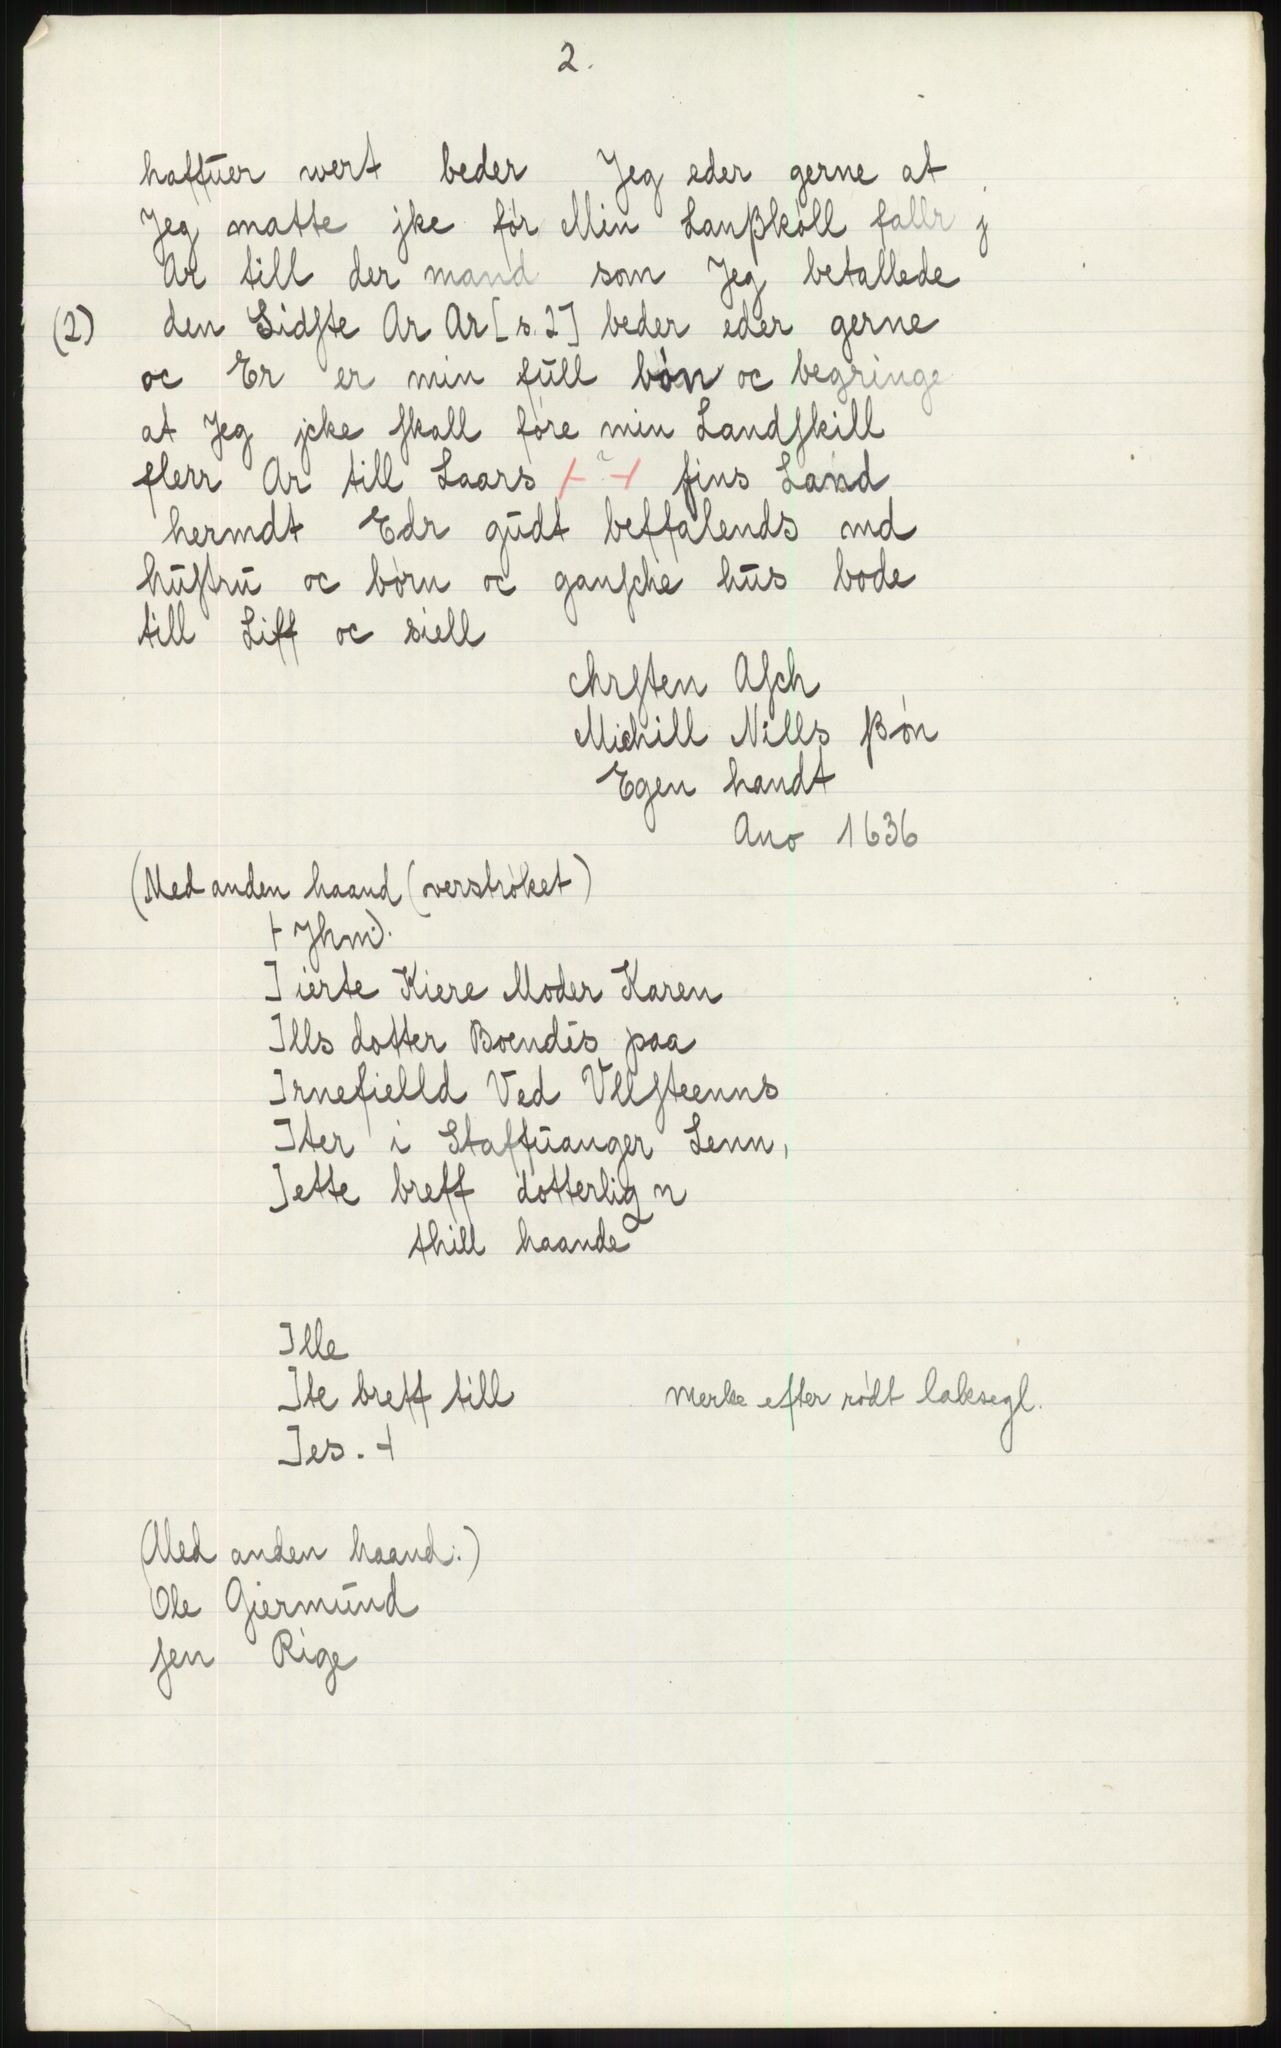 2.
haffuer wert beder Jeg eder gerne at
Jeg matte jke før Min Lanβkóll fallr j
Ar till der mand som Jeg betallede
(2) den Sidste Ar Ar [s. 2] beder eder gerne
oc Er er min full bøn oc begringe
at Jeg jcke skall føre min Landskill
flerr Ar till Laars fins Land
hermdt Edr gudt beffalends md
hustru oc børn oc gansche hus bode
till Liff oc siell
chrsten Asch
Michill Nills βøn
Egen handt
Ano 1636
(Med anden haand (overstrøket)
+ Jhm).
] ierte Kiere Moder Karen
]lls dotter Boendis paa
]rnefielld Ved Vllsteenns
]ter i Staffuanger Lenn,
]ette breff dotterlig n
thill haande
]lle
]te breff till merke efter rødt laksegl.
]es. +
(Med anden haand:)
Ole Giermund
sen Rige